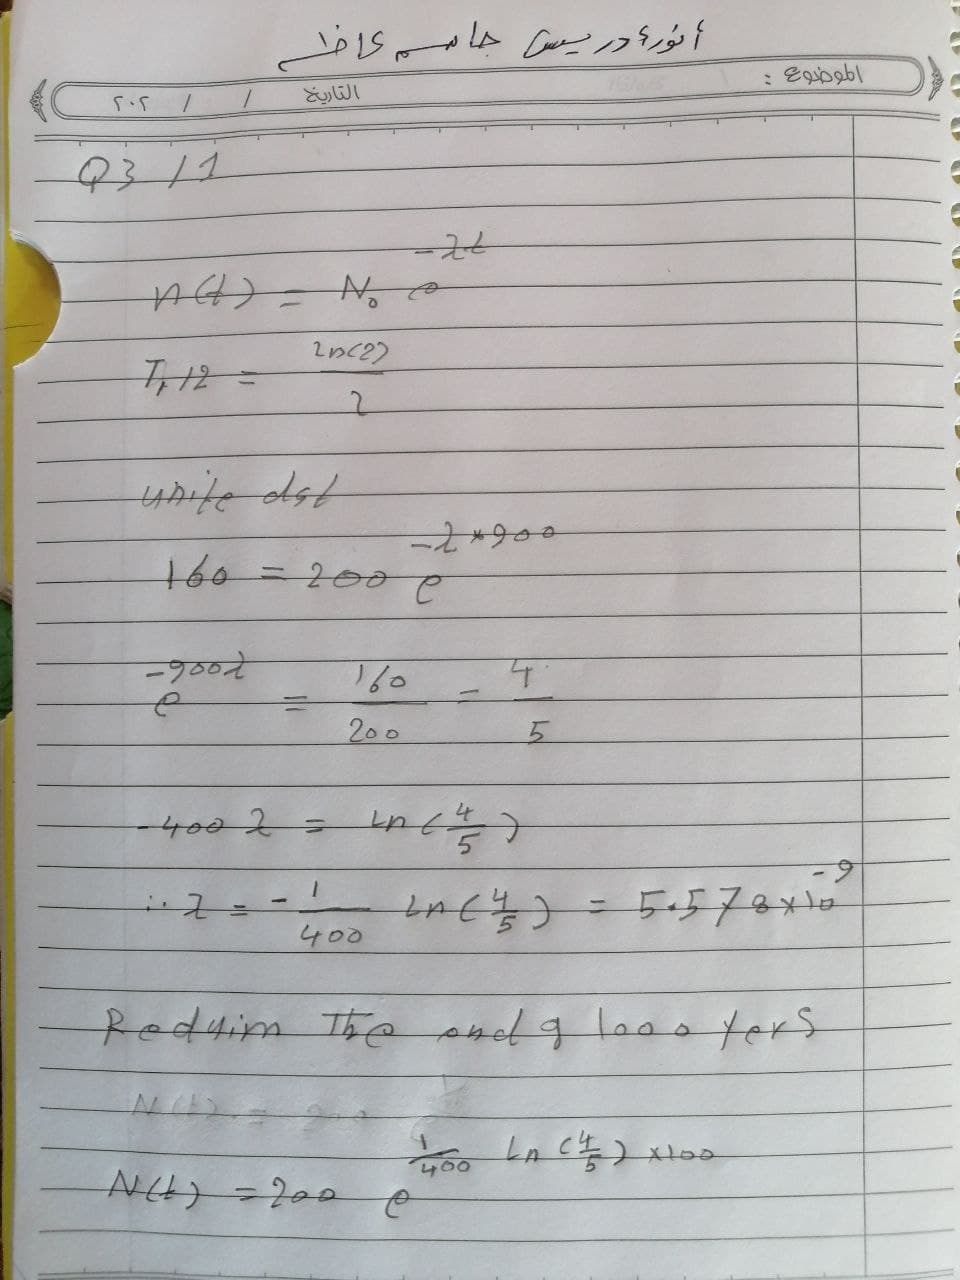 أنور أدريس جاسم كاظم
الموضوع :
التاريخ / / ٢٠٢
Q3 /1
n(t) = N₀ e^-λt
T1/2 = ln(2)/λ
unite dst
160 = 200 e^-λ*900
e^-900λ = 160/200 = 4/5
-400 λ = Ln(4/5)
∴ λ = -1/400 Ln(4/5) = 5.578×10^-9
the end 1000 yers
N(t) = 200
N(t) = 200 e^1/400 Ln(4/5) ×100